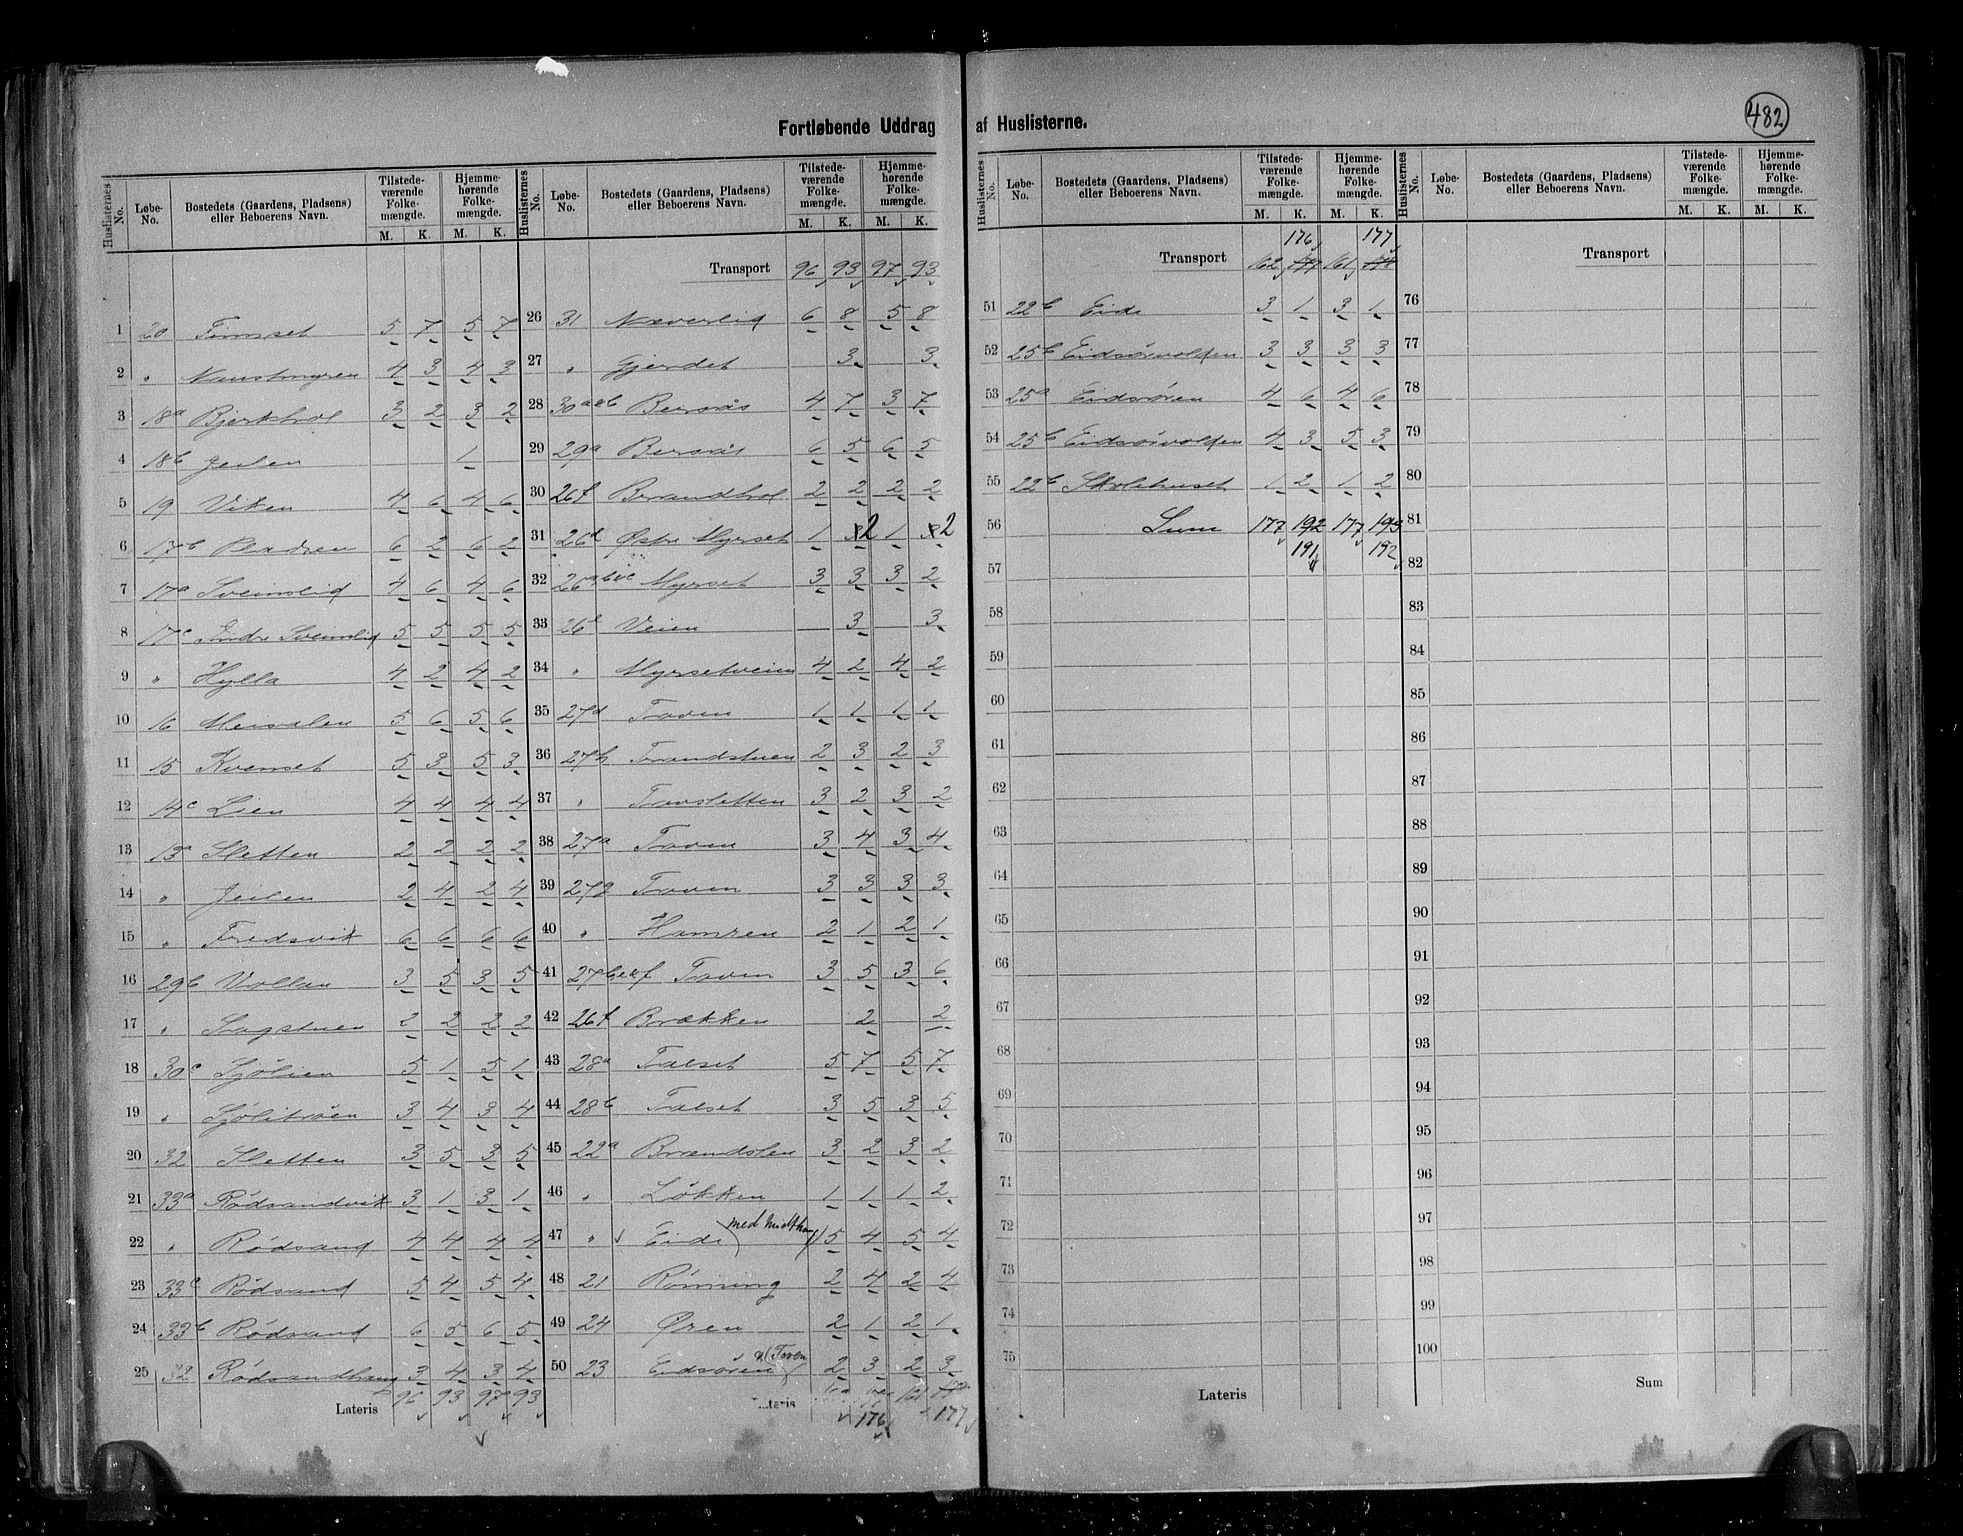 Fortløbende Uddrag af Huslisterne.
482
Huslisternes No. | Løbe-No. | Bostedets (Gaardens, Pladsens) eller Beboerens Navn. | Tilstedeværende Folkemængde. M. K. | Hjemmehørende Folkemængde. M. K.
1 20 Timset 5 7 5 7
2 " Naustmyren 4 3 4 3
3 18a Bjerkhol 3 2 3 2
4 18b Jeilen 1
5 19 Viken 4 6 4 6
6 17b 6 2 6 2
7 17a Sveinslid 4 6 4 6
8 17c Indre Sveinslid 5 5 5 5
9 " Hylla 4 2 4 2
10 16 5 6 5 6
11 15 Kvenset 5 3 5 3
12 14c Lien 4 4 4 4
13 13a Sletten 2 2 2 2
14 " Jeilen 2 4 2 4
15 " Fredsvik 6 6 6 6
16 29b Vollan 3 5 3 5
17 " Sagstuen 2 2 2 2
18 30c Sjölien 5 1 5 1
19 " Sjölitrøen 3 4 3 4
20 32 Sletten 3 5 3 5
21 33a Rødsandvik 3 1 3 1
22 " Rødsand 4 4 4 4
23 33c Rødsand 5 4 5 4
24 33b Rødsand 6 5 6 5
25 32 Rødsandhaug 3 4 3 4
Lateris 96 93 97 93
Huslisternes No. | Løbe-No. | Bostedets (Gaardens, Pladsens) eller Beboerens Navn. | Tilstedeværende Folkemængde. M. K. | Hjemmehørende Folkemængde. M. K.
Transport 96 93 97 93
26 31 Næverlid 6 8 5 8
27 " Gjerdet 3 3
28 30a&b Bersås 4 7 3 7
29 29a Bersås 6 5 6 5
30 26f Brandhol 2 2 2 2
31 26d Østre Myrset 1 2 1 2
32 26abc Myrset 3 3 3 2
33 26e Veien 3 3
34 " Myrsetveien 4 2 4 2
35 27d Traven 1 1 1 1
36 27h Trandstuen 2 3 2 3
37 " Travsletten 3 2 3 2
38 27a Traven 3 4 3 4
39 27g Traven 3 3 3 3
40 " Hamren 2 1 2 1
41 27bef Traven 3 5 3 6
42 26f Brækken 2 2
43 28a Talset 5 7 5 7
44 28b Talset 3 5 3 5
45 22a Brandslen 3 2 3 2
46 " Løkken 1 1 1 2
47 " Eide (med Midthaug) 5 4 5 4
48 21 Rønning 2 4 2 4
49 24 Øren 2 1 2 1
50 23 Eidsøren 2 3 2 3
Lateris 161
176 177
Huslisternes No. | Løbe-No. | Bostedets (Gaardens, Pladsens) eller Beboerens Navn. | Tilstedeværende Folkemængde. M. K. | Hjemmehørende Folkemængde. M. K.
176 177
Transport 162 177 161 178
51 22b Eide 3 1 3 1
52 25b Eidsørvolden 3 3 3 3
53 25a Eidsøren 4 6 4 6
54 25b Eidsørvolden 4 3 5 3
55 22b Skolehuset 1 2 1 2
56 Sum 177 192 177 193
191 192
57
58
59
60
61
62
63
64
65
66
67
68
69
70
71
72
73
74
75
Lateris
Huslisternes No. | Løbe-No. | Bostedets (Gaardens, Pladsens) eller Beboerens Navn. | Tilstedeværende Folkemængde. M. K. | Hjemmehørende Folkemængde. M. K.
Transport
76
77
78
79
80
81
82
83
84
85
86
87
88
89
90
91
92
93
94
95
96
97
98
99
100
Sum